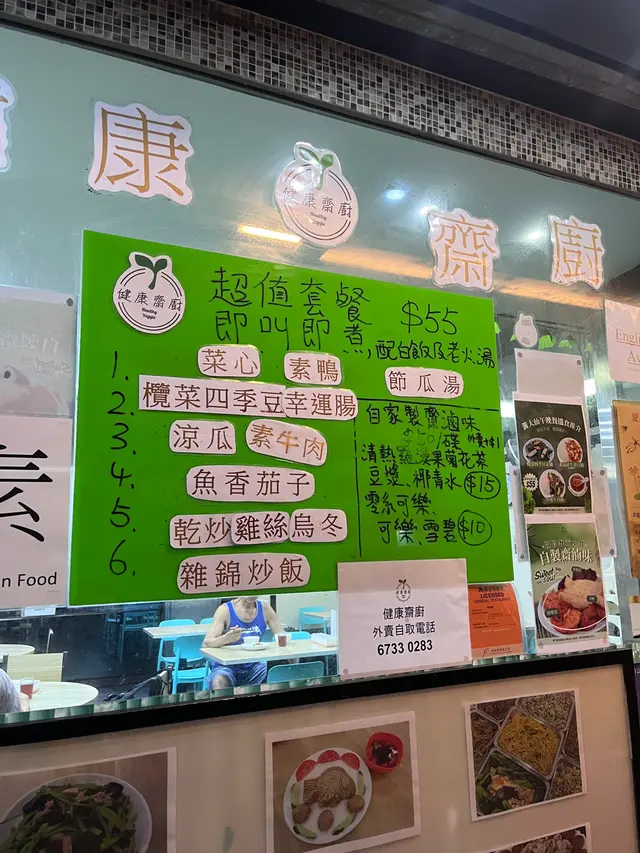 康
齋
廚
健康齋廚
Healthy
Veggie
健康齋廚
Healthy
Veggie
超值套餐
$55
即叫即煮, 配白飯及老火湯
節瓜湯
1. 菜心 素鴨
2. 欖菜四季豆幸運腸
3. 涼瓜 素牛肉
4. 魚香茄子
5. 乾炒雞絲烏冬
6. 雜錦炒飯
自家製齋滷味
清熱羅漢果菊花茶
豆漿、椰青水 $15
零系可樂、
可樂、雪碧 $10
健康齋廚
外賣自取電話
6733 0283
素
n Food
Engli
自製齋滷味
LICENSED